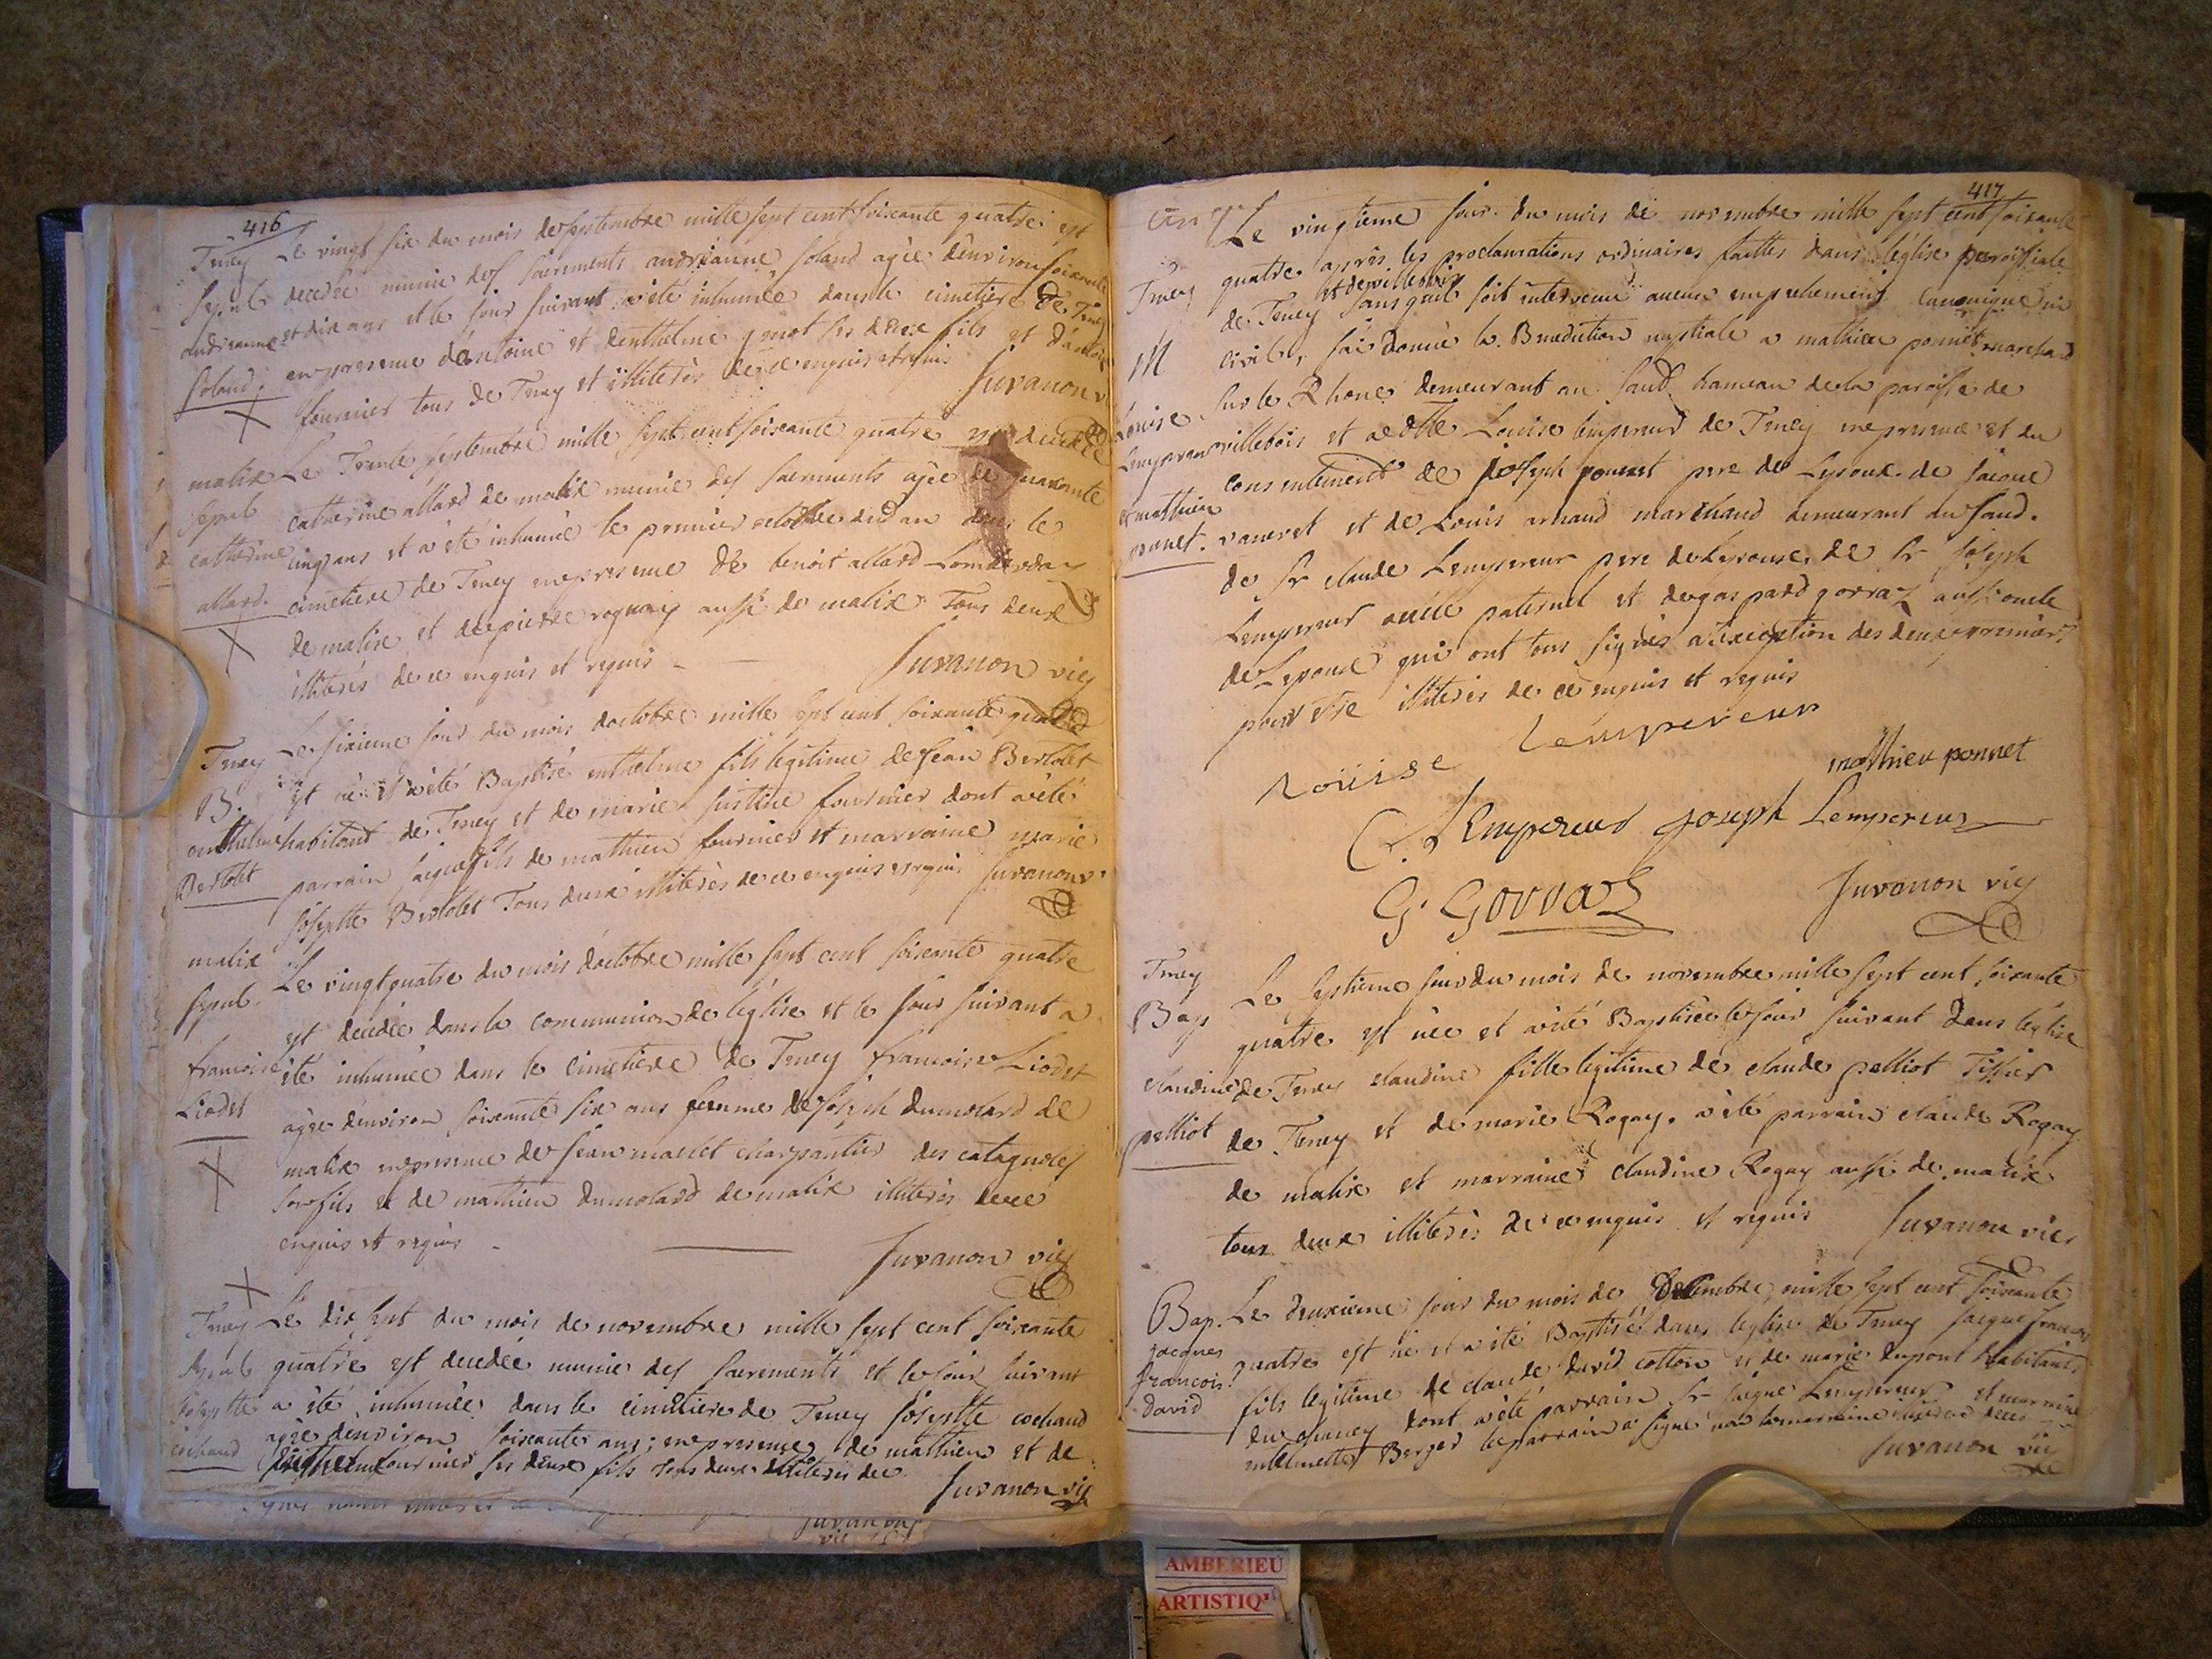 416
Teney Le vingt six du mois de septembre mille sept cent soixante quatre est
sepul decedée munie des sacrements andréanne soland agée denviron soixante
andreanne et dix ans et le jour suivant a été inhumée dans le cimetiere de Teney
soland. en presence dantoine et denthelme ses deux fils et d'antoine
fournier tous de Teney et illiterés de ce enquis et requis Juvanon v
malix Le Trente septembre mille sept cent soixante quatre est decedée
sepul catherine allard de malix munie des sacrements agée de quarante
catherine cinq ans et a été inhumée le premier octobre dud an dans le
allard. cimetiere de Teney en presence de benoit allard
de malix et de pierre rognay aussi de malix Tous deux
illiterés de ce enquis et requis - Juvanon vic
Teney Le sixieme jour du mois doctobre mille sept cent soixante quatre
B. est né et a été Baptisé enthelme fils legitime de Jean Bertolet
enthelme habitant de Teney et de marie justine fournier dont a été
Bertolet parrain jaque fils de mathieu fournier et marraine marie
josephte Bertolet Tous deux illiterés de ce enquis et requis Juvanon v.
malix Le vingt quatre du mois doctobre mille sept cent soixante quatre
sepul. est decedée dans la communion de l'église et le jour suivant a
francoise été inhumée dans le cimetiere de Teney francoise Liodet
Liodet agée denviron soixante six ans femme de joseph dumolard de
malix en presence de jean mallet charpantier des catagnoles
son fils et de mathieu dumolard de malix illiterés de ce
enquis et requis - Juvanon vic
Teney Le dix sept du mois de novembre mille sept cent soixante
sepul quatre est decedée munie des sacrements et le jour suivant
josephte a été inhumée dans le cimetiere de Teney josephte cochaud
cochaud agée denviron soixante ans; en presence de mathieu et de
fournier ses deux fils tous deux illiterés de ce Juvanon vic
Juvanon
417
Le vingtieme jour du mois de novembre mille sept cent soixante
quatre après les proclamations ordinaires faittes dans l'église paroissiale
et de villebois
Teney de Teney sans quil soit intervenu aucun empechement canonique ni
M civil, j'ai donné la Benediction nuptiale a mathieu ponnet marchand
Louise sur le Rhone demeurant au saud hameau de la paroisse de
Lempereur villebois et a dlle Louise lempereur de Teney en presence et du
et mathieu consentement de joseph ponnet pere de Lepoux de jaque
ponnet. vaneret et de Louis arnaud marchand demeurant au saud.
de sr claude Lempereur pere de Lepouse, de sr joseph
Lempereur oncle paternel et de gaspard gorraz aussi oncle
de Lepoux qui ont tous signés a l'exception des deux premiers
pour être illiterés de ce enquis et requis
Loüise Lempereur
mathieu ponnet
C. Lempereur joseph Lempereur
G. Gorraz Juvanon vic
Teney Le septieme jour du mois de novembre mille sept cent soixante
Bap quatre est née et a été Baptisée le jour suivant dans l'église
claudine de Teney claudine fille legitime de claude pelliot Tissier
pelliot de Teney et de marie Rogay. a été parrain claude Rogay
de malix et marraine claudine Rogay aussi de malix
tous deux illiterés de ce enquis et requis Juvanon vic
Bap. Le deuxieme jour du mois de Decembre mille sept cent soixante
jacques quatre est né et a été Baptisé dans l'eglise de Teney jaque francois
francois fils legitime de claude david cotton et de marie dupont habitants
david du chaney dont a été parrain sr jaque Lempereur et marraine
enthelmette Berger le parrain a signé non la marraine illiterée de ce
Juvanon vic
AMBERIEU
ARTISTIQ